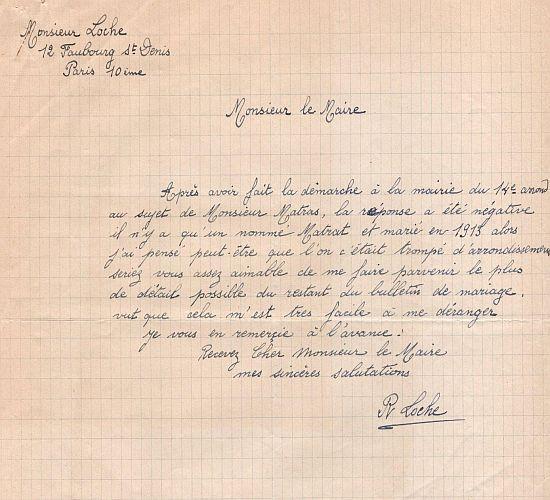 Monsieur Loche
12 Faubourg St Denis
Paris 10ème
Monsieur le Maire
Après avoir fait la démarche à la mairie du 14e arrond
au sujet de Monsieur Matras, la réponse a été négative
il n'y a qu'un nommé Matrat et marié en 1913 alors
j'ai pensé peut-être que l'on c'était trompé d'arrondissement
seriez vous assez aimable de me faire parvenir le plus
de détail possible du restant du bulletin de mariage,
vut que cela m'est très facile à me déranger
je vous en remerçie à l'avance :
Recevez Cher Monsieur le Maire
mes sincères salutations
R Loche